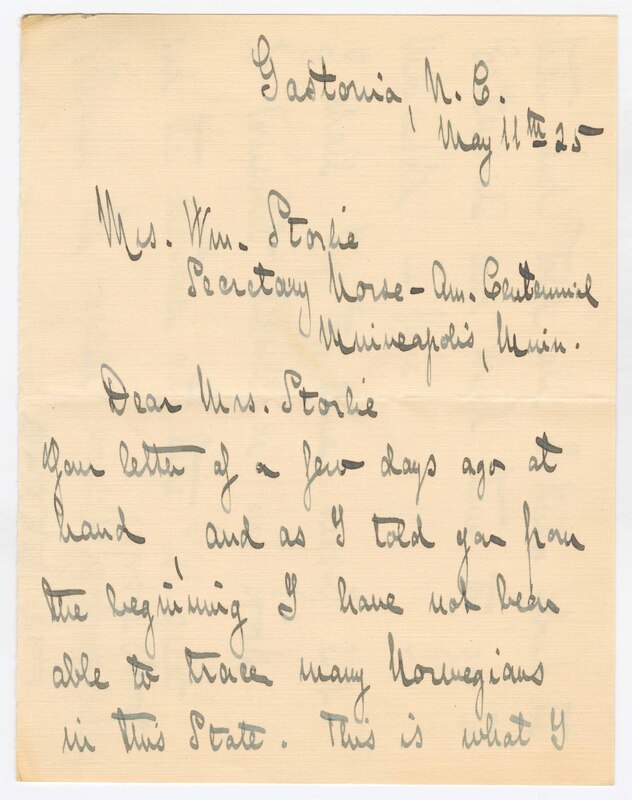 Gastonia, N. C.
May 11th 25
Mrs. Wm. Storlie
Secretary Norse-Am. Centennial
Minneapolis, Minn.
Dear Mrs. Storlie
Your letter of a few days ago at
hand, and as I told you from
the beginning I have not been
able to trace many Norwegians
in this State. This is what I